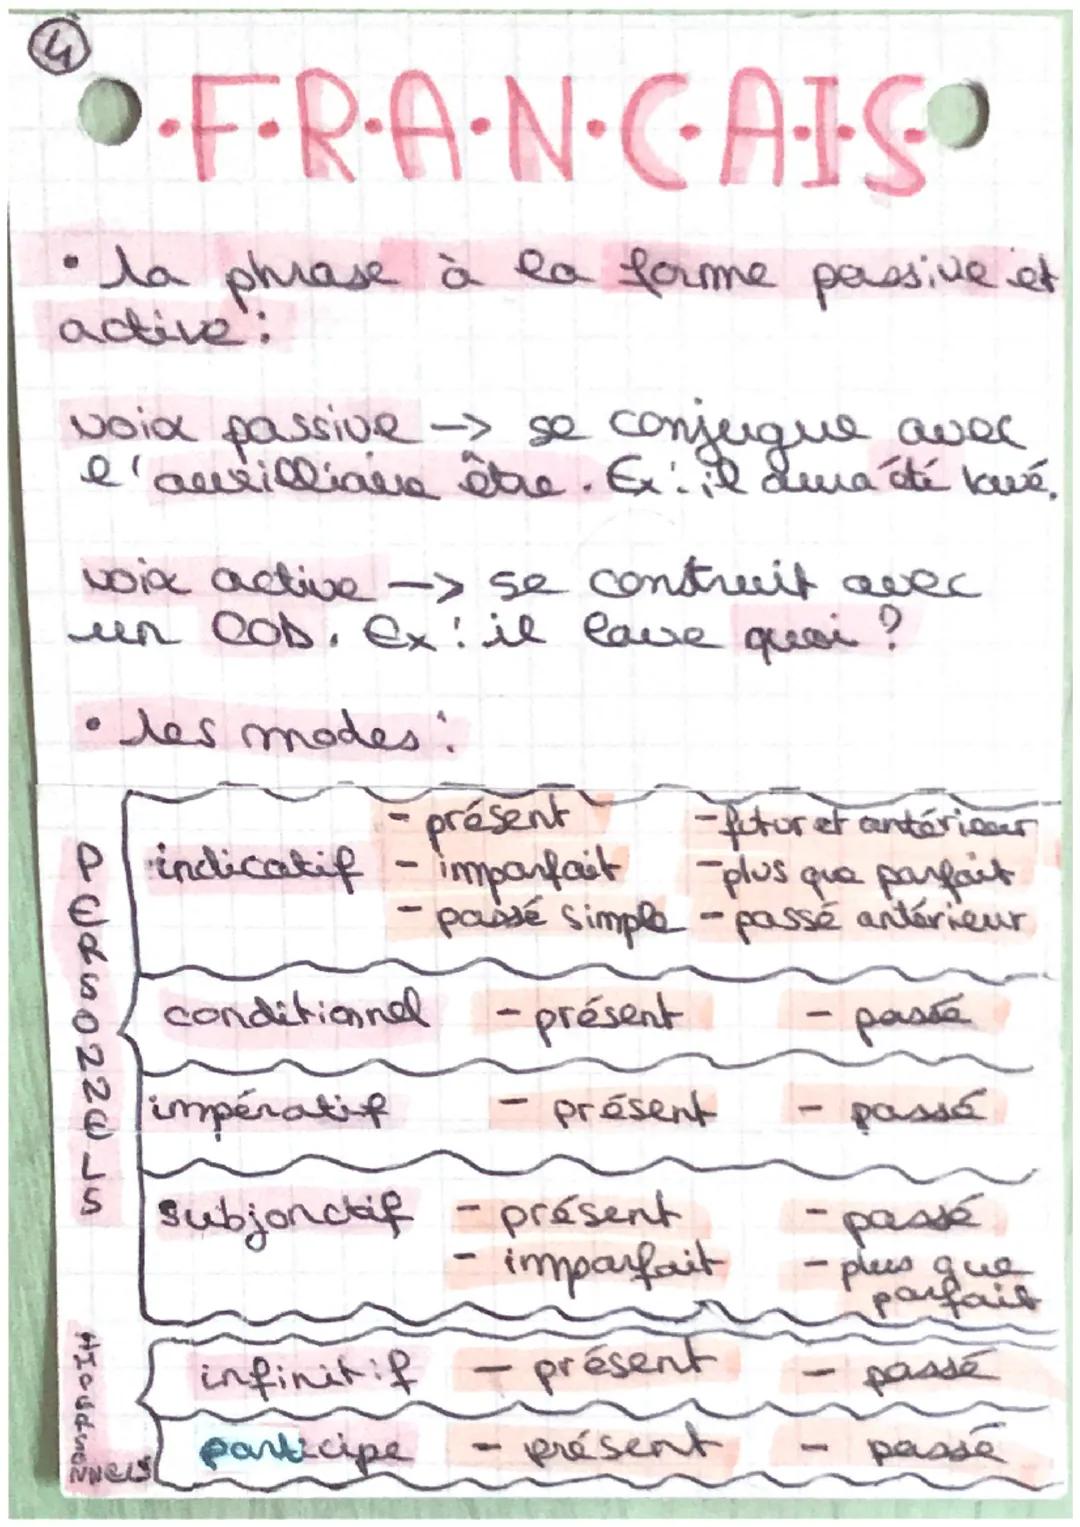 4
F.R.A.N.C.A.I.S
• la phrase à la forme passive et
active :
voix passive -> se conjugue avec
l'auxilliaire être. Ex : il aura été lavé.
voix active -> se construit avec
un COD. Ex : il lave quoi ?
• les modes :
PERSONNELS
indicatif - présent - futur et antérieur
- imparfait - plus que parfait
- passé simple - passé antérieur
conditionnel - présent - passé
impératif - présent - passé
subjonctif - présent - passé
- imparfait - plus que
parfait
infinitif - présent - passé
participe - présent - passé